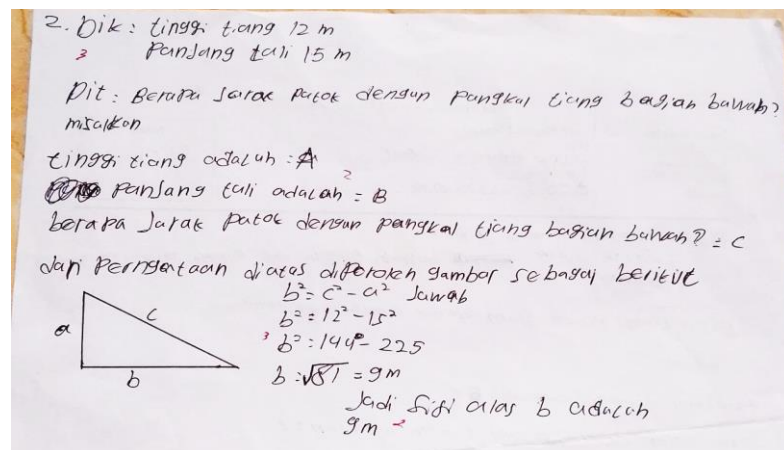 2. Dik : tinggi tiang 12 m
3 Panjang tali 15 m
Dit : Berapa Jarak Patok dengan Pangkal tiang bagian bawah?
misalkan
tinggi tiang adalah : A
2
Panjang tali adalah = B
berapa Jarak Patok dengan pangkal tiang bagian bawah? = C
dari Pernyataan diatas diperoleh gambar sebagai berikut
b² = c² - a² Jawab
b² = 12² - 15²
3 b² = 144 - 225
b = √81 = 9m
a
c
b
Jadi Sisi alas b adalah
9m 2